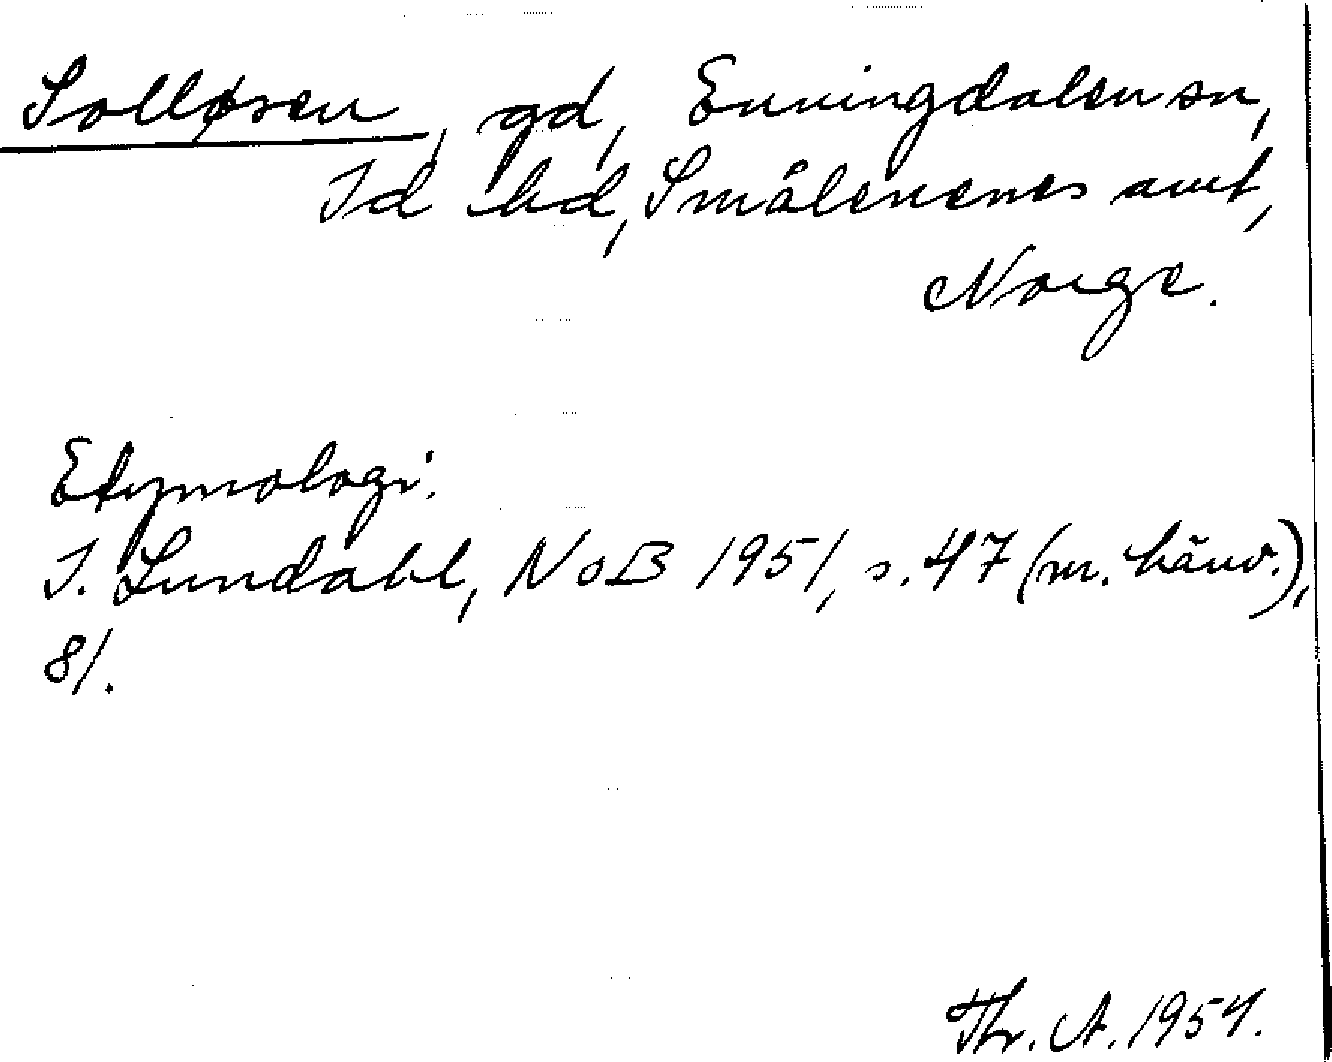 Solløsen, gd, Enningdalen sn,
Id hd, Smålenenes amt,
Norge.
Etymologi.
I. Lundahl, NoB 1951, s. 47 (m. hänv.),
81.
Thr. A. 1954.